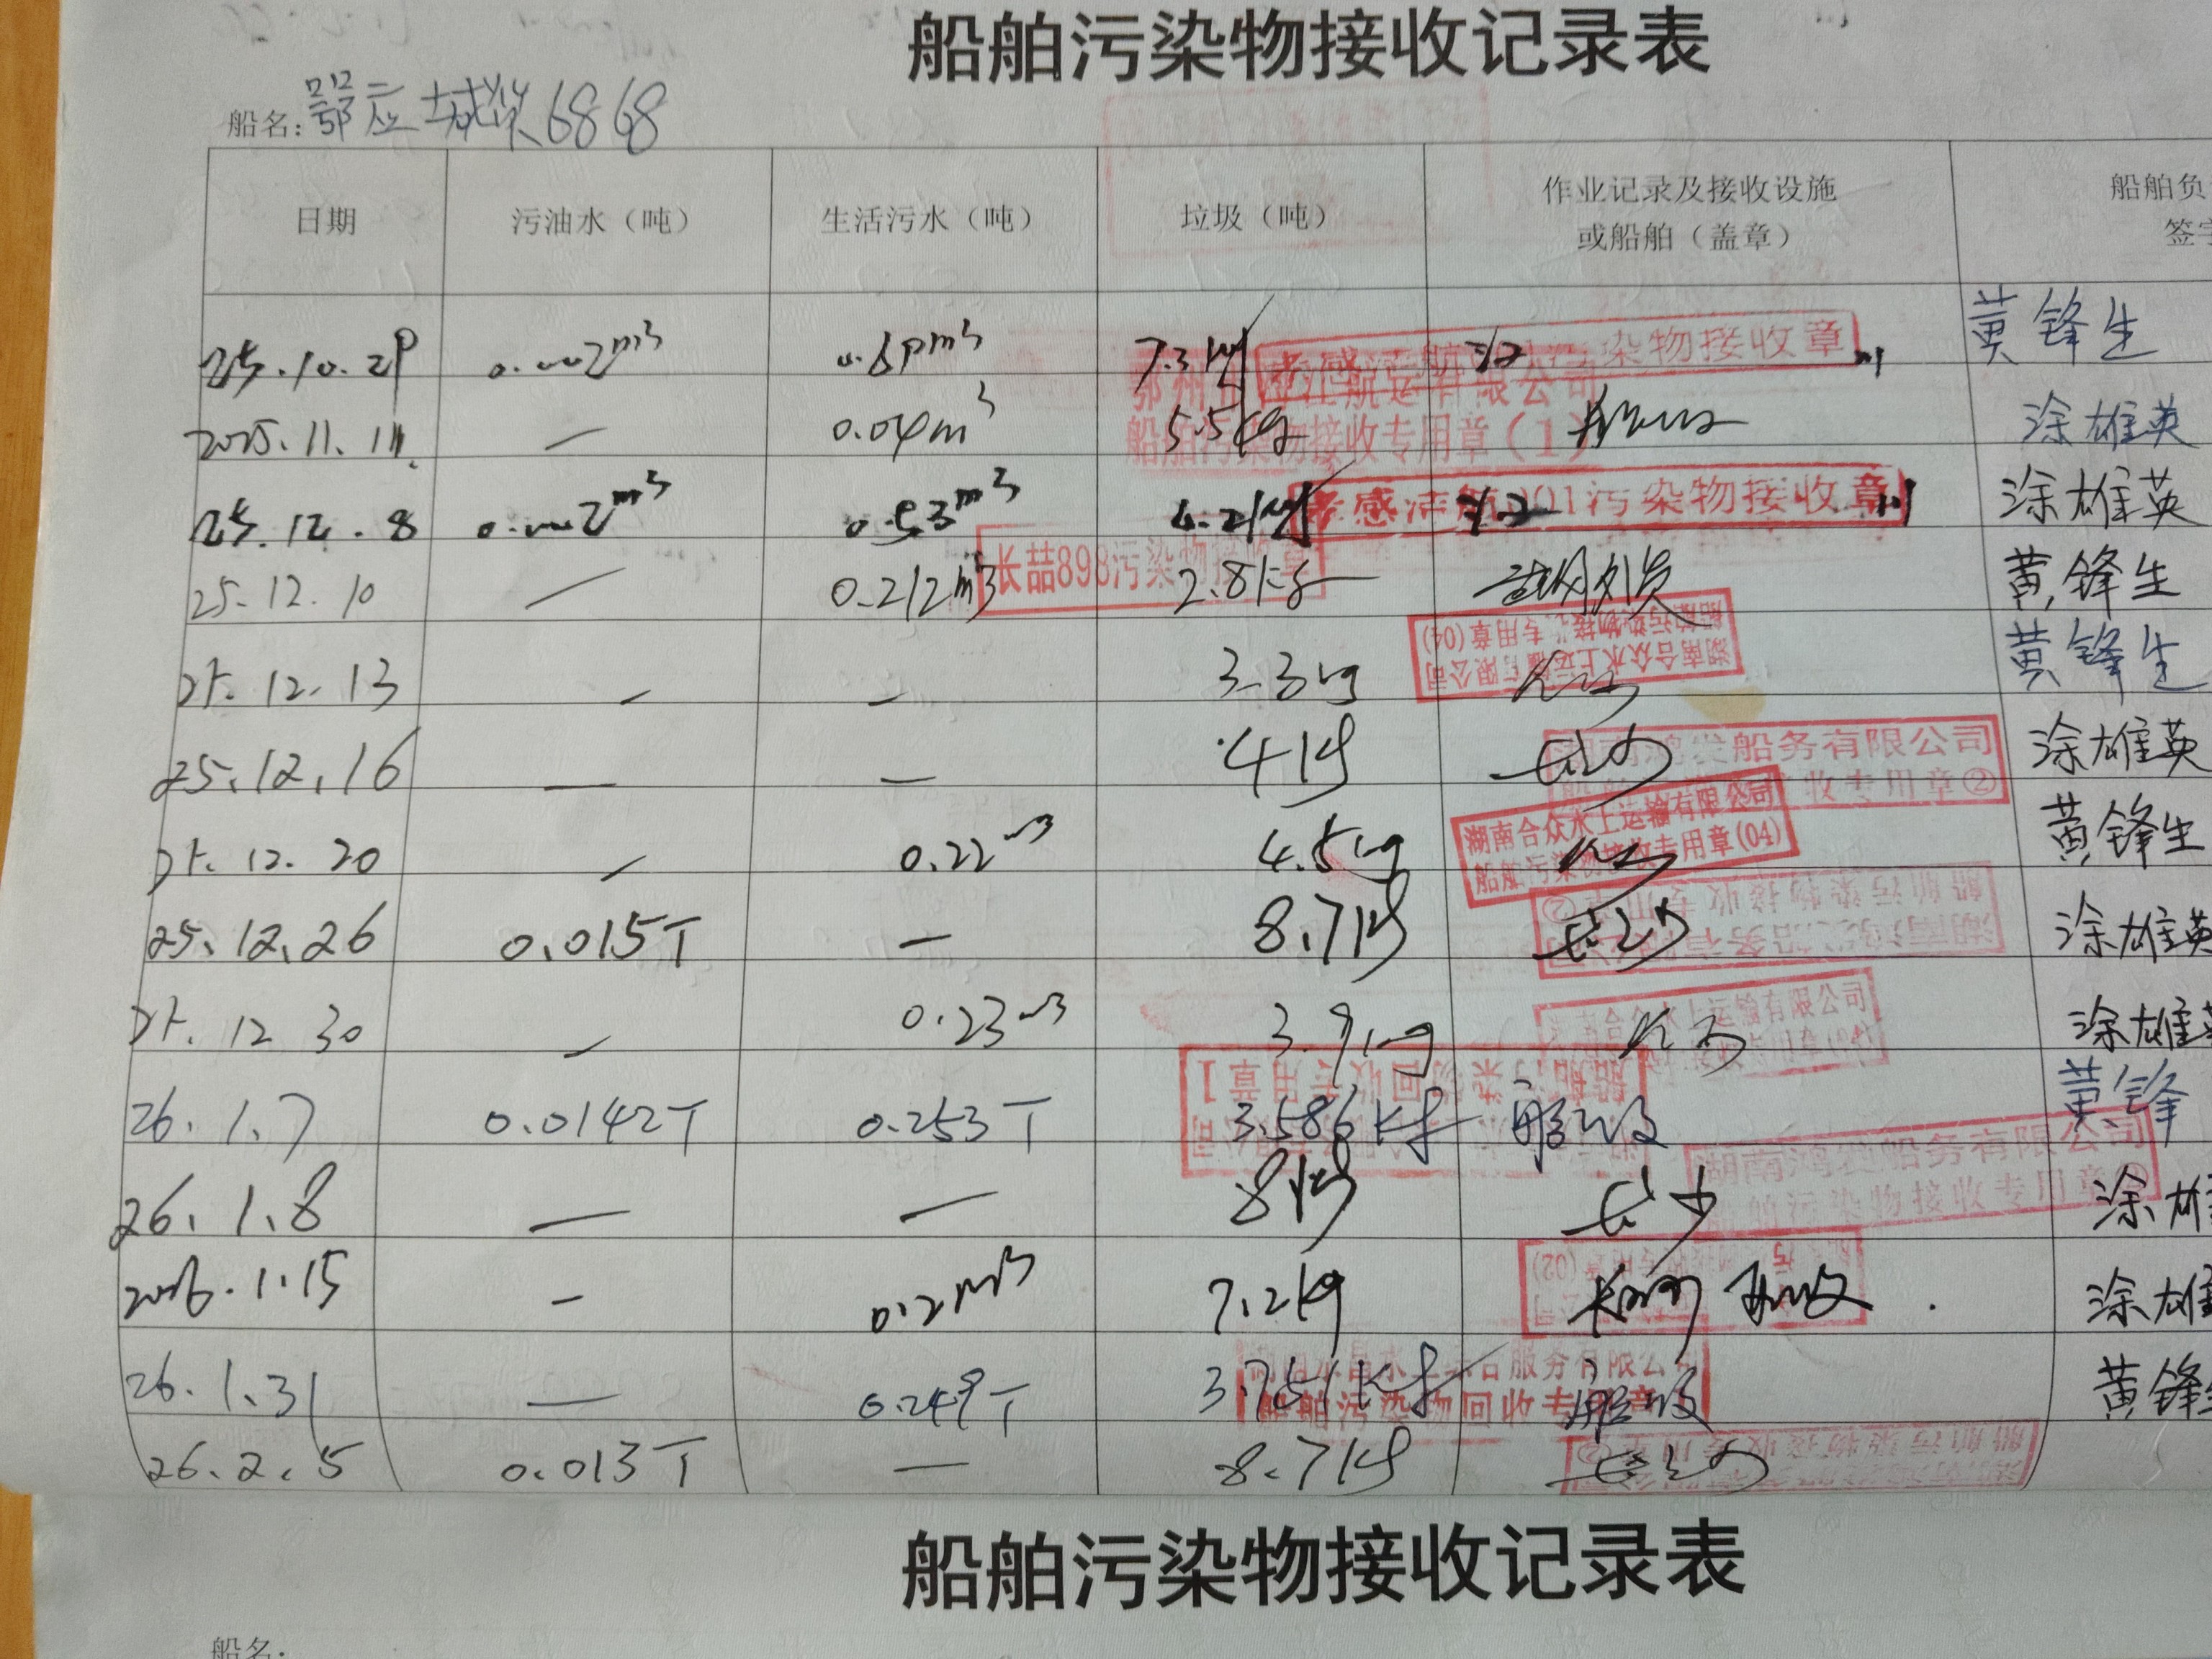 船舶污染物接收记录表
船名: 鄂应城货6868
日期 污油水（吨） 生活污水（吨） 垃圾（吨） 作业记录及接收设施或船舶（盖章） 船舶负 签字
25.10.29 0.002m³ 0.69m³ 7.3kg 污染物接收章 黄锋生
2025.11.11 — 0.04m³ 5.5kg 船舶污染物接收专用章（1） 涂雄英
25.12.8 0.002m³ 0.53m³ 4.2kg 孝感洁航001污染物接收章 涂雄英
25.12.10 — 0.212m³ 2.8kg 长喆898污染物接收章 黄锋生
25.12.13 — — 3.3kg 湖南合众水上运输有限公司 船舶污染物接收专用章(04) 黄锋生
25.12.16 — — 4kg 长沙 船务有限公司 收专用章② 涂雄英
25.12.20 — 0.22m³ 4.5kg 湖南合众水上运输有限公司 船舶污染物接收专用章(04) 黄锋生
25.12.26 0.015T — 8.7kg 长沙 船舶污染物接收专用章② 涂雄英
25.12.30 — 0.23m³ 3.9kg 合众水上运输有限公司 涂雄英
26.1.7 0.0142T 0.253T 3.586kg 船舶污染物回收专用章1 黄锋
26.1.8 — — 8kg 长沙 船务有限公司 船舶污染物接收专用章 涂雄
2026.1.15 — 0.2m³ 7.2kg (02) 涂雄
26.1.31 — 0.249T 3.751kg 服务有限公司 船舶污染物回收专用章 黄锋生
26.2.5 0.013T — 8.7kg 长沙 船舶污染物接收专用章②
船舶污染物接收记录表
船名: